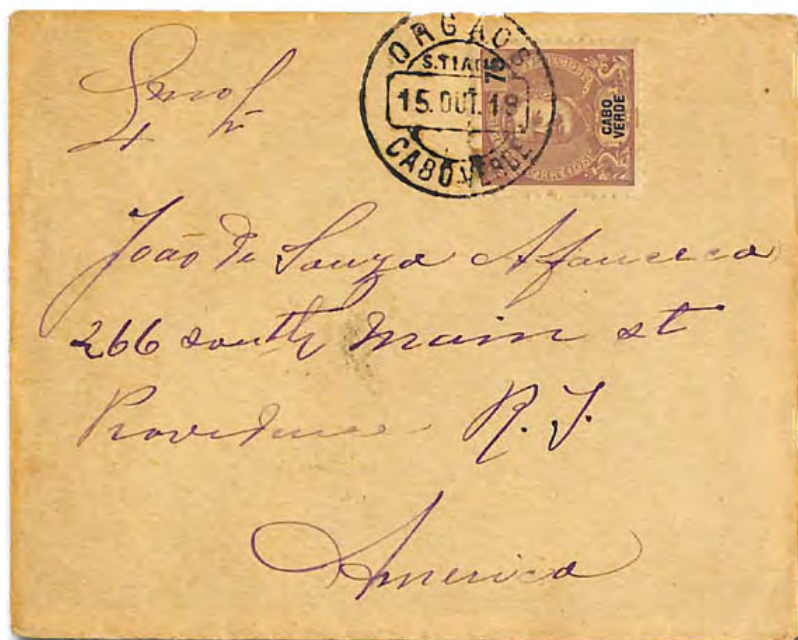 ORGAOS
S.TIAGO
75
15. OUT. 19
CABO VERDE
CABO
VERDE
CORREIOS
João de Souza Afonceca
266 south main st
Providence R. J.
America